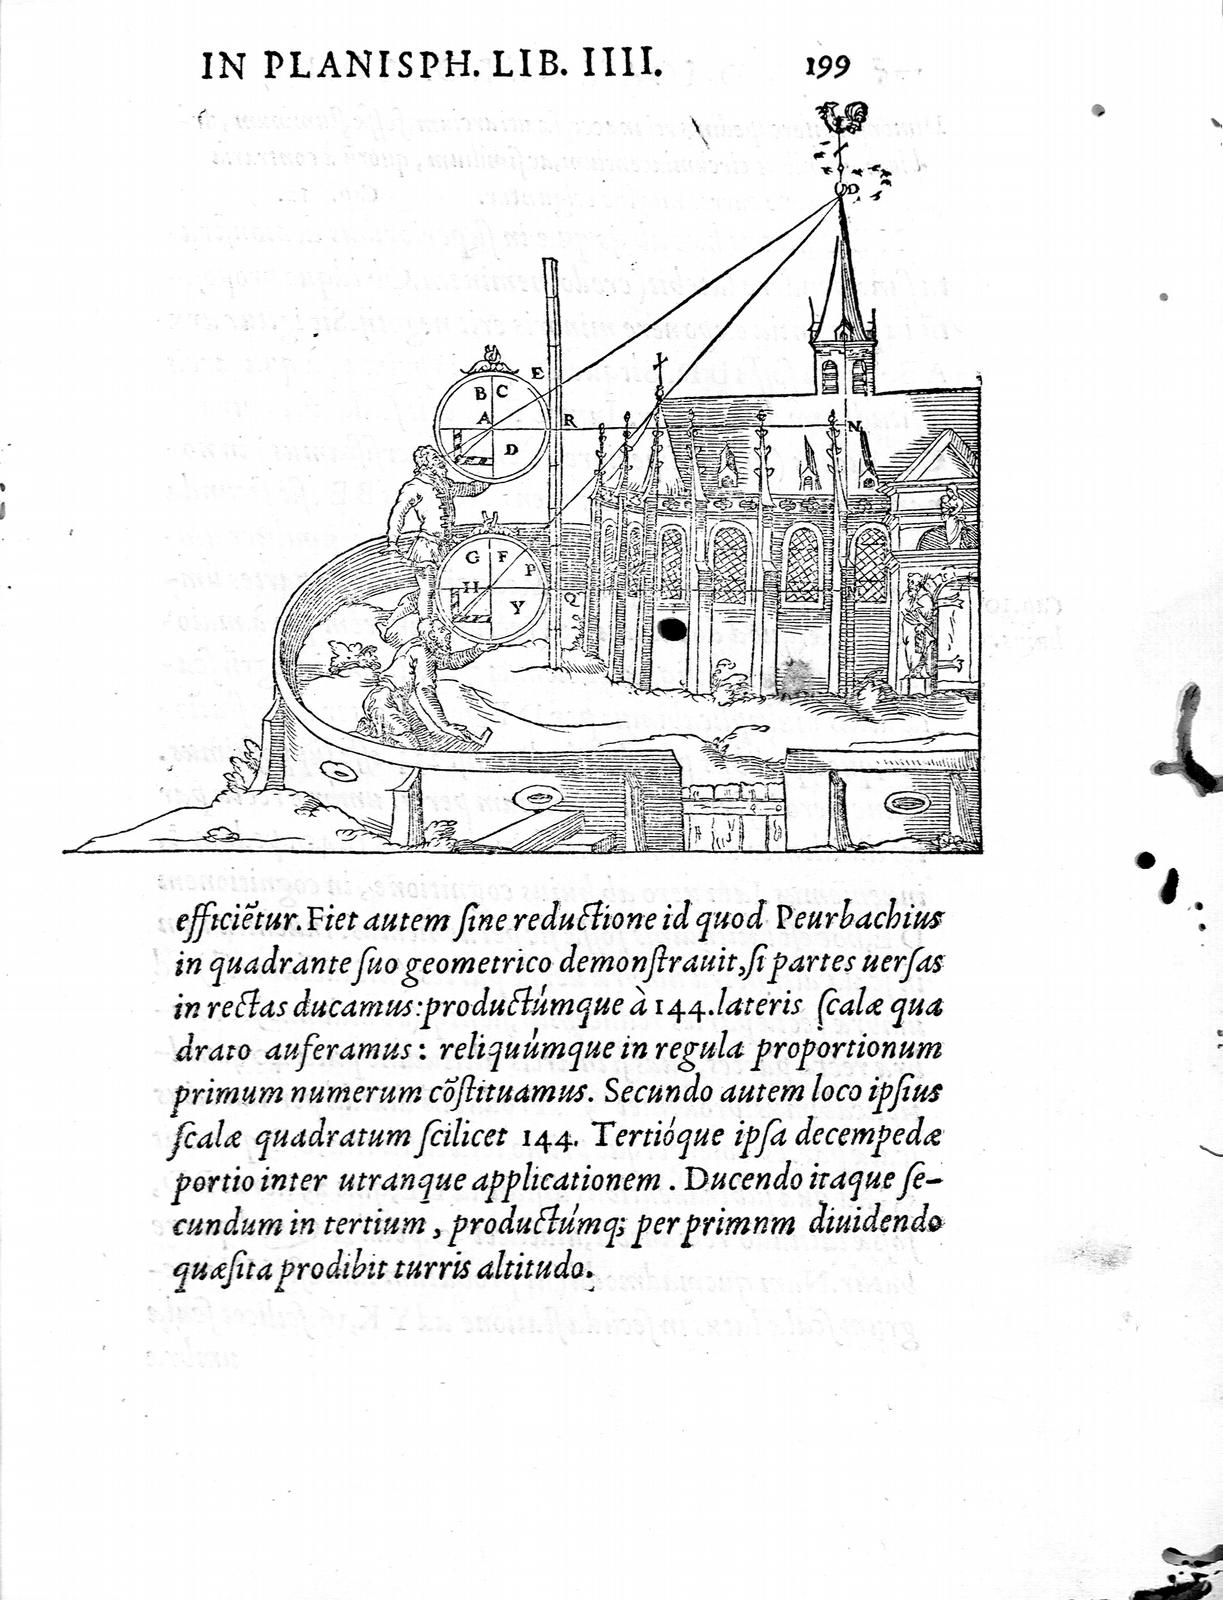 IN PLANISPH. LIB. IIII. 199
D
E
B C
A
R
N
D
G F
P
H
Y
Q
efficiẽtur. Fiet autem ſine reductione id quod Peurbachius
in quadrante ſuo geometrico demonſtrauit, ſi partes uerſas
in rectas ducamus: productúmque à 144. lateris ſcalæ qua
drato auferamus: reliquúmque in regula proportionum
primum numerum cõſtituamus. Secundo autem loco ipſius
ſcalæ quadratum ſcilicet 144. Tertióque ipſa decempedæ
portio inter utranque applicationem. Ducendo itaque ſe-
cundum in tertium, productúmq; per primnm diuidendo
quæſita prodibit turris altitudo.